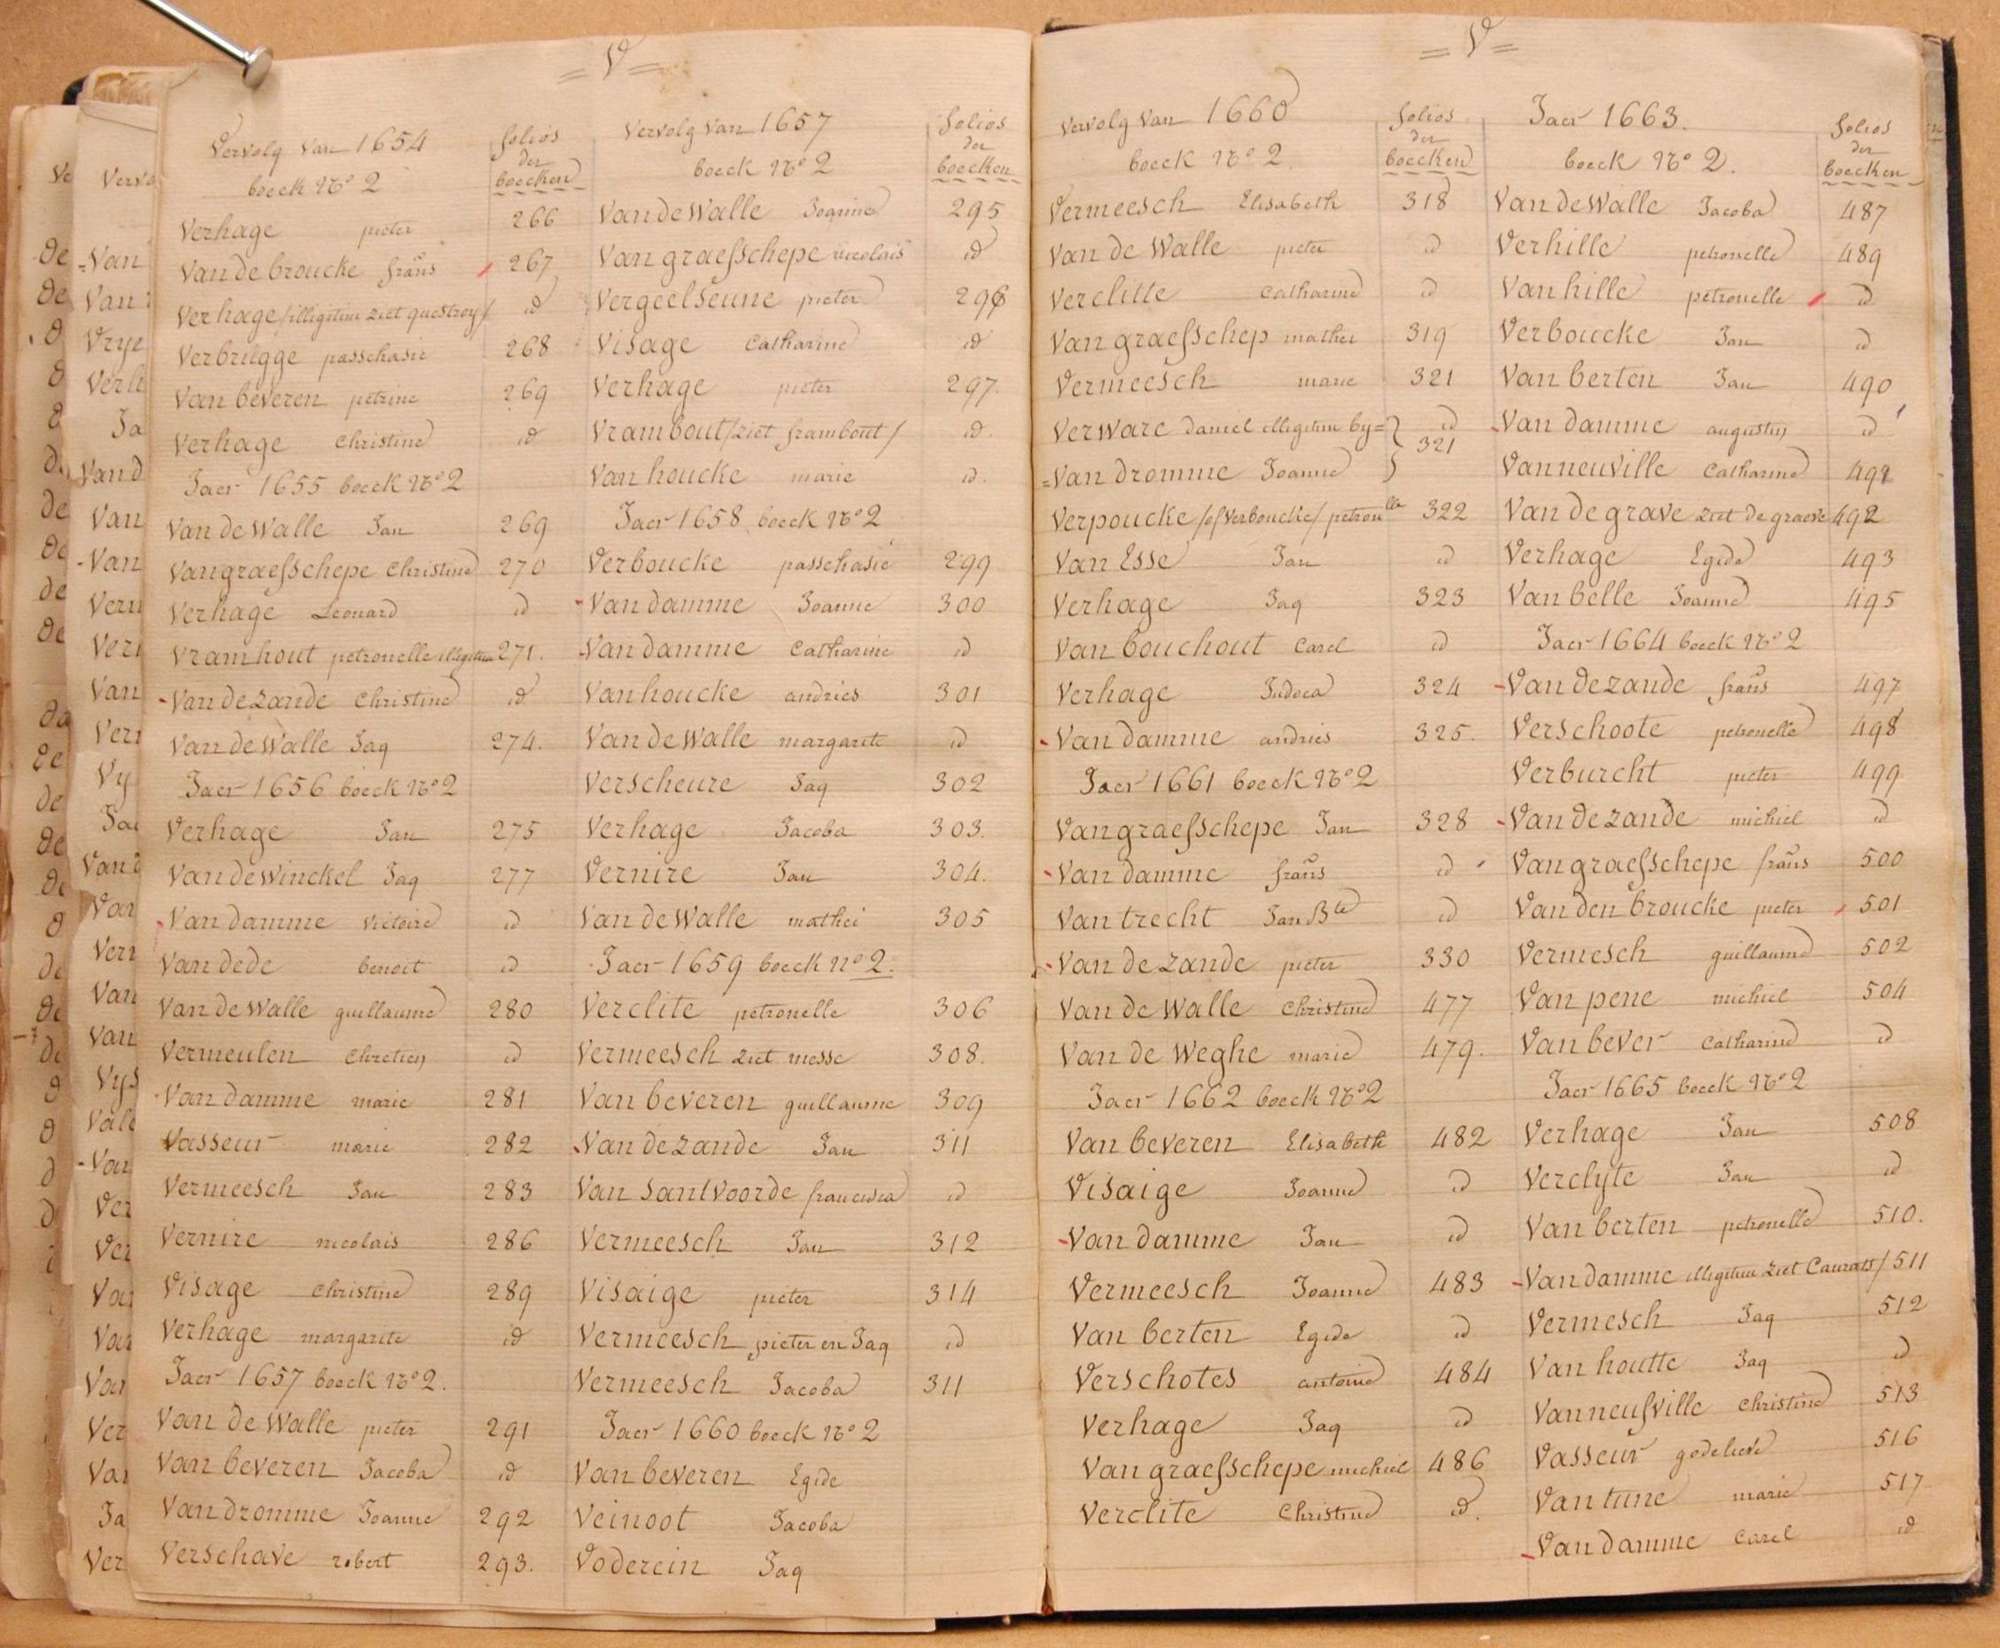 = V =
Vervolg van 1654
boeck No 2
folios
der
boecken
Verhage pieter 266
Van de broucke frans 267
Verhage /illigitim ziet questroy/ id
Verbrugge passchasie 268
Van beveren petrine 269
Verhage Christine id
Jaer 1655 boeck No 2
Van de Walle Jan 269
Van graefschepe Christine 270
Verhage Leonard id
Vramhout petronelle illigitim 271.
Van de zande Christine id
Van de Walle Jaq 274.
Jaer 1656 boeck No 2
Verhage Jan 275
Van de Winckel Jaq 277
Van damme victoire id
Van dede benoit id
Van de Walle guillaume 280
Vermeulen Chretien id
Van damme marie 281
Vasseur marie 282
Vermeesch Jan 283
Vernire nicolais 286
Visage Christine 289
Verhage margarite id
Jaer 1657 boeck No 2.
Van de Walle pieter 291
Van beveren Jacoba id
Van dromme Joanne 292
Verschave robert 293.
Vervolg van 1657
boeck No 2
folios
der
boecken
Van de Walle Joanne 295
Van graefschepe nicolais id
Vergeelseune pieter 296
Visage Catharine id
Verhage pieter 297.
Vrambout /ziet frambout/ id.
Van houcke marie id.
Jaer 1658 boeck No 2
Verboucke passchasie 299
Van damme Joanne 300
Van damme Catharine id
Van houcke andries 301
Van de Walle margarite id
Verscheure Jaq 302
Verhage Jacoba 303.
Vernire Jan 304.
Van de Walle mathei 305
Jaer 1659 boeck no 2.
Verclite petronelle 306
Vermeesch ziet messe 308.
Van beveren guillaume 309
Van de zande Jan 311
Van Santvoorde francisca id
Vermeesch Jan 312
Visaige pieter 314
Vermeesch pieter en Jaq id
Vermeesch Jacoba 311
Jaer 1660 boeck No 2
Van beveren Egide
Veinoot Jacoba
Voderein Jaq
= V =
Vervolg van 1660
boeck No 2.
folios
der
boecken
Vermeesch Elisabeth 318
Van de Walle pieter id
Verclitte Catharine id
Van graefschep mathei 319
Vermeesch marie 321
Verware daniel illigitim by= } id
=Van dromme Joanne } 321
Verpoucke /of Verboucke/ petronlle 322
Van Esse Jan id
Verhage Jaq 323
Van bouchout Carel id
Verhage Judoca 324
Van damme andries 325.
Jaer 1661 boeck No 2
Van graefschepe Jan 328
Van damme frans id
Van trecht Jan Bte id
Van de zande pieter 330
Van de Walle Christine 477
Van de Weghe marie 479.
Jaer 1662 boeck No 2
Van beveren Elisabeth 482
Visaige Joanne id
Van damme Jan id
Vermeesch Joanne 483
Van berten Egide id
Verschotes antoine 484
Verhage Jaq id
Van graefschepe michiel 486
Verclite Christine id.
Jaer 1663.
boeck No 2.
folios
der
boecken
Van de Walle Jacoba 487
Verhille petronelle 489
Van hille petronelle id
Verboucke Jan id
Van berten Jan 490
Van damme augustin id
Van neuville Catharine 491
Van de grave ziet de graeve 492
Verhage Egide 493
Van belle Joanne 495
Jaer 1664 boeck No 2
Van de zande frans 497
Verschoote petronelle 498
Verburcht pieter 499
Van de zande michiel id
Van graefschepe frans 500
Van den broucke pieter 501
Vermesch guillaume 502
Van pene michiel 504
Van bever Catharine id
Jaer 1665 boeck No 2
Verhage Jan 508
Verclyte Jan id
Van berten petronelle 510.
Van damme illigitim ziet Caurats/ 511
Vermesch Jaq 512
Van houtte Jaq id
Van neufville Christine 513
Vasseur godelieve 516
Van tune marie 517
Van damme Carel id